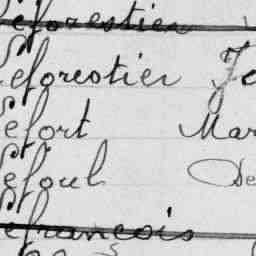 Leforestier
Leforestier Je
Lefort Mar
Lefoul De
Lefrançois